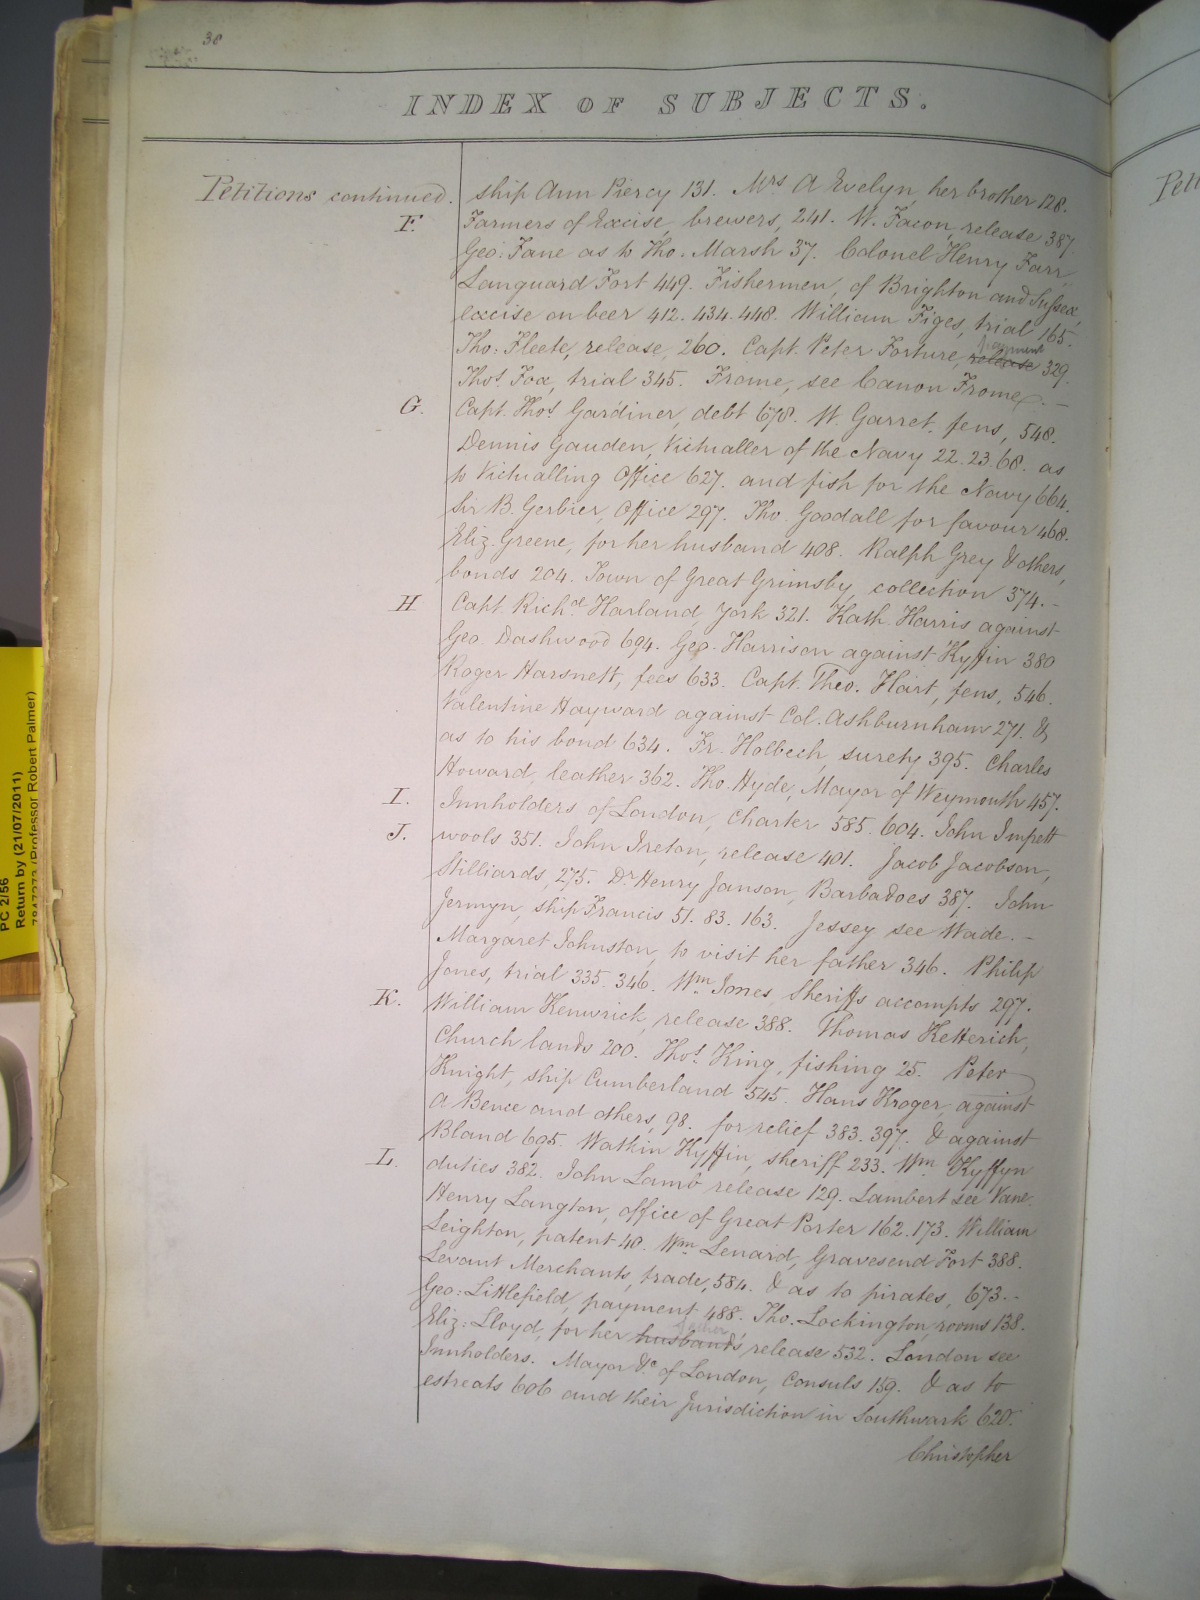 38
INDEX OF SUBJECTS.
Petitions continued. ship Ann Piercy 131. Mrs A Evelyn, her brother 128.
F. Farmers of Excise, brewers, 241. W. Facon, release 387.
Geo: Fane as to Tho. Marsh 37. Colonel Henry Farr,
Languard Fort 449. Fishermen, of Brighton and Sussex,
excise on beer 412. 434. 448. William Figes, trial 165.
Tho: Fleete, release, 260. Capt. Peter Forture, release payment 329.
Thos. Fox, trial 345. Frome, see Canon Frome. –
G. Capt. Thos. Gardiner, debt 678. W. Garret, fens, 548.
Dennis Gauden, Victualler of the Navy 22. 23. 68. as
to Victualling Office 627. and fish for the Navy 664.
Sir B. Gerbier, Office 297. Tho. Goodall for favour 468.
Eliz. Greene, for her husband 408. Ralph Grey & others,
bonds 204. Town of Great Grimsby, collection 374. –
H Capt. Richd Harland, York 321. Kath. Harris against
Geo. Dashwood 694. Geo. Harrison against Kyffin 380
Roger Harsnett, fees 633. Capt. Theo. Hart, fens, 546.
Valentine Hayward against Col. Ashburnham 271. &
as to his bond 634. Fr. Holbech, surety 395. Charles
Howard, leather 362. Tho. Hyde, Mayor of Weymouth 457.
I. Innholders of London, Charter 585. 604. John Impett
J. wools 351. John Ireton, release 401. Jacob Jacobson,
Stilliards, 275. Dr Henry Janson, Barbadoes 387. John
Jermyn, ship Francis 51. 83. 163. Jessey see Wade. –
Margaret Johnston, to visit her father 346. Philip
Jones, trial 335. 346. Wm. Jones, Sheriffs accompts 297.
K. William Kenwrick, release 388. Thomas Ketterich,
Church lands 200. Thos. King, fishing 25. Peter
Knight, ship Cumberland 545. Hans Kroger, against
A. Bence and others, 98. for relief 383. 397. & against
Bland 695. Watkin Kyffin, sheriff 233. Wm. Kyffyn
L. duties 382. John Lamb release 129. Lambert see Vane.
Henry Langton, office of Great Porter 162. 173. William
Leighton, patent 40. Wm Lenard, Gravesend Fort 388.
Levant Merchants, trade, 584. & as to pirates, 673. –
Geo: Littlefield, payment 488. Tho. Lockington, rooms 138.
Eliz: Lloyd, for her husband's father release 532. London see
Innholders. Mayor &c of London, Consuls 159. & as to
estreats 606 and their Jurisdiction in Southwark 620.
Christopher
Peti
PC 2/56
Return by (21/07/2011)
7847273 (Professor Robert Palmer)